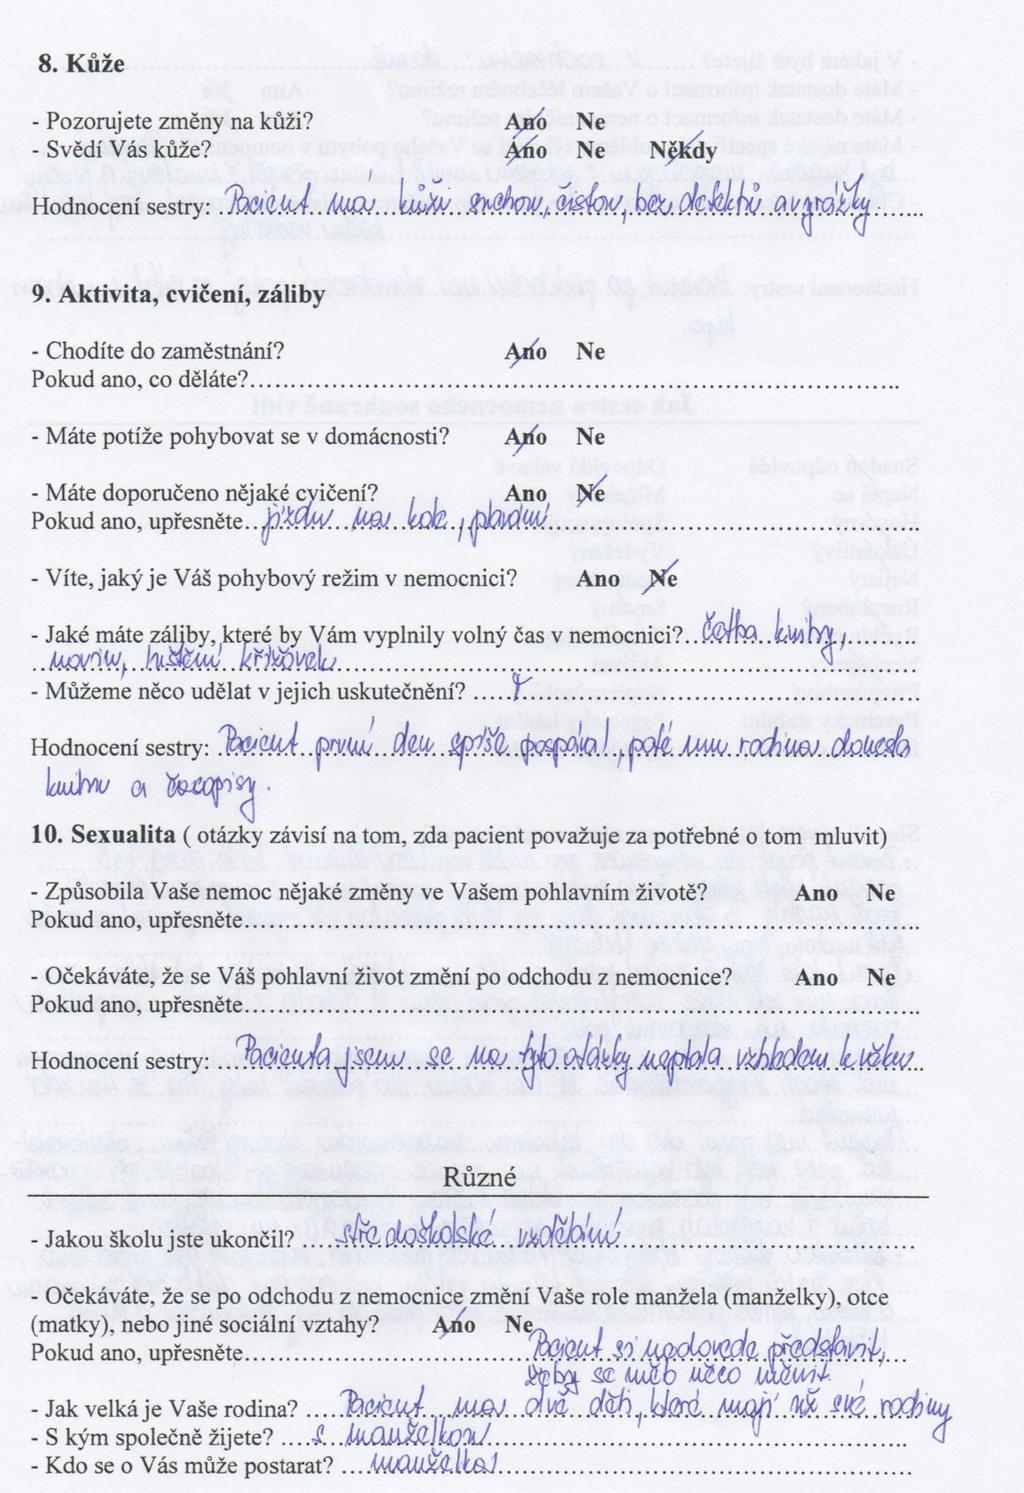 8. Kůže
- Pozorujete změny na kůži? Ano Ne
- Svědí Vás kůže? Ano Ne Někdy
Hodnocení sestry: Pacient má kůži suchou, čistou, bez defektů a vyrážky
9. Aktivita, cvičení, záliby
- Chodíte do zaměstnání? Ano Ne
Pokud ano, co děláte?
- Máte potíže pohybovat se v domácnosti? Ano Ne
- Máte doporučeno nějaké cvičení? Ano Ne
Pokud ano, upřesněte jízdu na kole, plavání
- Víte, jaký je Váš pohybový režim v nemocnici? Ano Ne
- Jaké máte záliby, které by Vám vyplnily volný čas v nemocnici? četba knihy,
novin, luštění křížovek
- Můžeme něco udělat v jejich uskutečnění?
Hodnocení sestry: Pacient první den spíše pospával, poté mu rodina donesla
knihu a časopisy.
10. Sexualita ( otázky závisí na tom, zda pacient považuje za potřebné o tom mluvit)
- Způsobila Vaše nemoc nějaké změny ve Vašem pohlavním životě? Ano Ne
Pokud ano, upřesněte
- Očekáváte, že se Váš pohlavní život změní po odchodu z nemocnice? Ano Ne
Pokud ano, upřesněte
Hodnocení sestry: Pacienta jsem se na tyto otázky neptala vzhledem k věku
Různé
- Jakou školu jste ukončil? středoškolské vzdělání
- Očekáváte, že se po odchodu z nemocnice změní Vaše role manžela (manželky), otce
(matky), nebo jiné sociální vztahy? Ano Ne
Pokud ano, upřesněte Pacient si nedovede představit,
žeby se mělo něco měnit.
- Jak velká je Vaše rodina? Pacient má dvě děti, které mají již své rodiny
- S kým společně žijete? s manželkou
- Kdo se o Vás může postarat? manželka